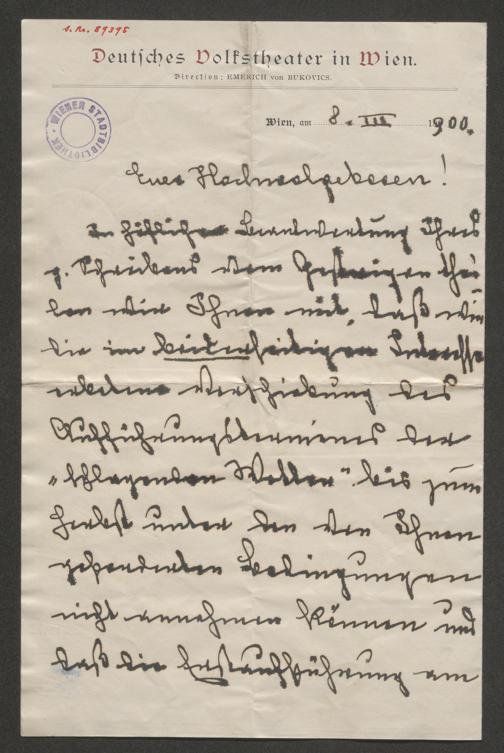 I. N. 59395
Deutsches Volkstheater in Wien.
Direction: EMERICH von BUKOVICS.
WIENER STADTBIBLIOTHEK
Wien, am 8. III 1900.
Euer Hochwohlgeboren!
In höflicher Beantwortung Ihres
g. Schreibens vom Gestrigen thei-
len wir Ihnen mit, daß wir
die im beiderseitigen Interesse
erbetene Verschiebung des
Aufführungstermines der
„schlagenden Wetter" bis zum
Herbst unter den von Ihnen
geforderten Bedingungen
nicht annehmen können und
daß die Erstaufführung am